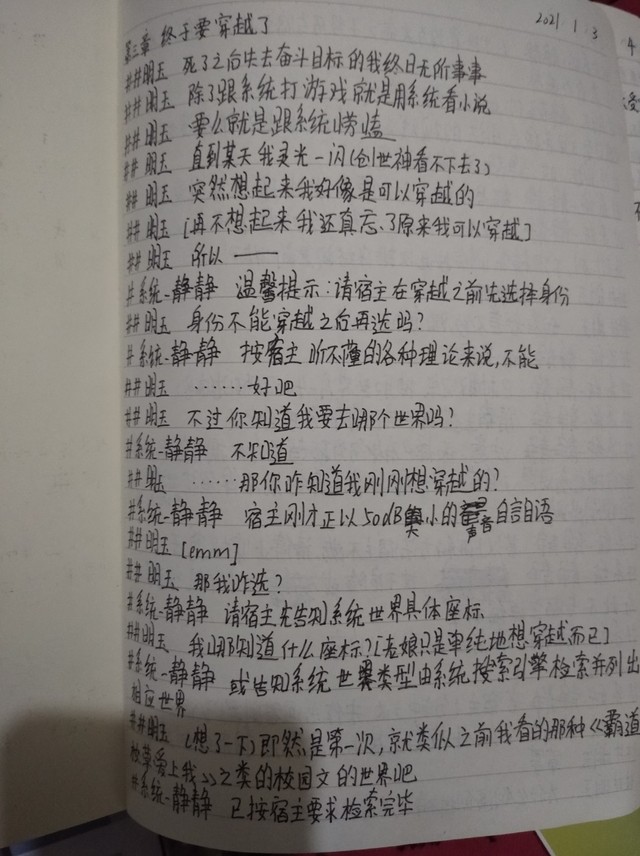 2021 1 3
第三章 终于要穿越了
##明玉 死了之后失去奋斗目标的我终日无所事事
##明玉 除了跟系统打游戏就是用系统看小说
##明玉 要么就是跟系统唠嗑
##明玉 直到某天我灵光一闪(创世神看不下去了)
##明玉 突然想起来我好像是可以穿越的
##明玉 [再不想起来我还真忘了原来我可以穿越]
##明玉 所以——
#系统-静静 温馨提示:请宿主在穿越之前先选择身份
##明玉 身份不能穿越之后再选吗?
#系统-静静 按宿主听不懂的各种理论来说,不能
##明玉 ……好吧
##明玉 不过你知道我要去哪个世界吗?
#系统-静静 不知道
##明玉 ……那你咋知道我刚刚想穿越的?
#系统-静静 宿主刚才正以50dB大小的声音自言自语
##明玉 [emm]
##明玉 那我咋选?
#系统-静静 请宿主先告知系统世界具体座标
##明玉 我哪知道什么座标?[老娘只是单纯地想穿越而已]
#系统-静静 或告知系统世界类型由系统搜索引擎检索并列出
相应世界
##明玉 (想了一下)即然是第一次,就类似之前我看的那种《霸道
校草爱上我》之类的校园文的世界吧
#系统-静静 已按宿主要求检索完毕